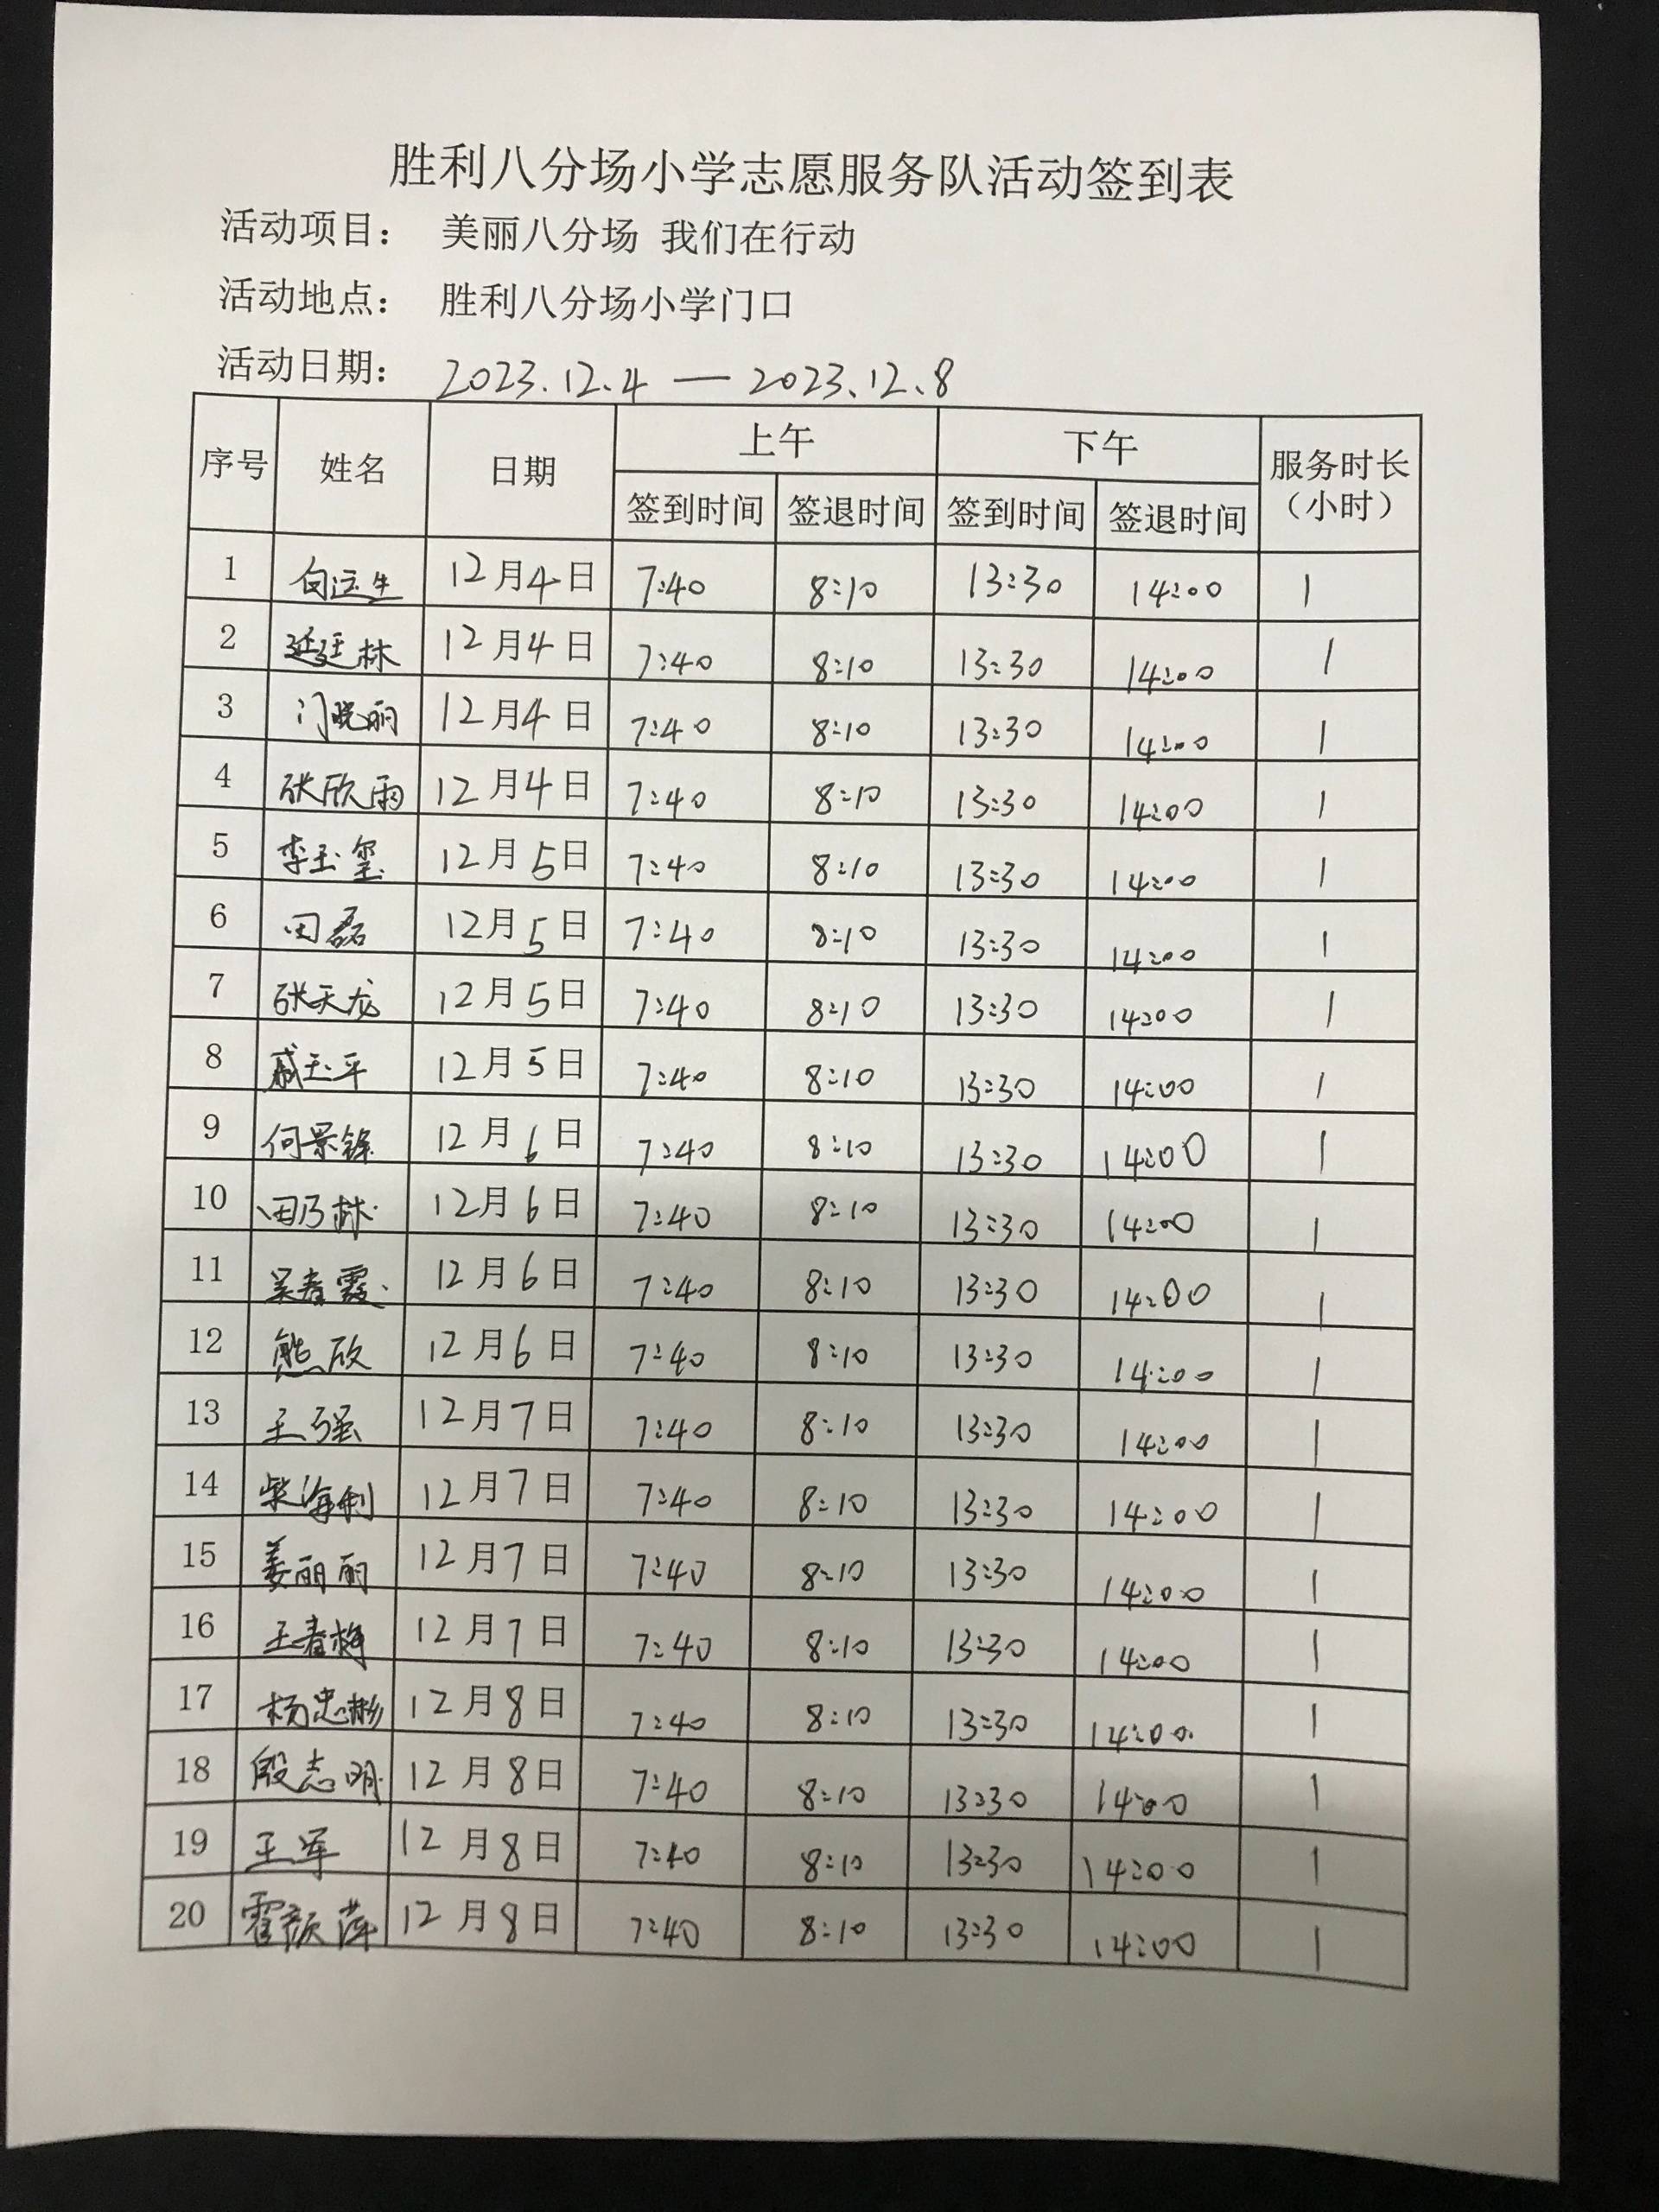 胜利八分场小学志愿服务队活动签到表
活动项目： 美丽八分场 我们在行动
活动地点： 胜利八分场小学门口
活动日期： 2023.12.4 — 2023.12.8
序号 姓名 日期 上午 下午 服务时长（小时）
签到时间 签退时间 签到时间 签退时间
1 白运生 12月4日 7:40 8:10 13:30 14:00 1
2 12月4日 7:40 8:10 13:30 14:00 1
3 门晓丽 12月4日 7:40 8:10 13:30 14:00 1
4 张欣雨 12月4日 7:40 8:10 13:30 14:00 1
5 李玉玺 12月5日 7:40 8:10 13:30 14:00 1
6 田磊 12月5日 7:40 8:10 13:30 14:00 1
7 张天龙 12月5日 7:40 8:10 13:30 14:00 1
8 戚玉平 12月5日 7:40 8:10 13:30 14:00 1
9 12月6日 7:40 8:10 13:30 14:00 1
10 田乃林 12月6日 7:40 8:10 13:30 14:00 1
11 吴春霞 12月6日 7:40 8:10 13:30 14:00 1
12 熊欣 12月6日 7:40 8:10 13:30 14:00 1
13 王强 12月7日 7:40 8:10 13:30 14:00 1
14 柴海利 12月7日 7:40 8:10 13:30 14:00 1
15 姜丽丽 12月7日 7:40 8:10 13:30 14:00 1
16 王春梅 12月7日 7:40 8:10 13:30 14:00 1
17 杨忠彬 12月8日 7:40 8:10 13:30 14:00 1
18 殷志明 12月8日 7:40 8:10 13:30 14:00 1
19 王军 12月8日 7:40 8:10 13:30 14:00 1
20 霍颜萍 12月8日 7:40 8:10 13:30 14:00 1